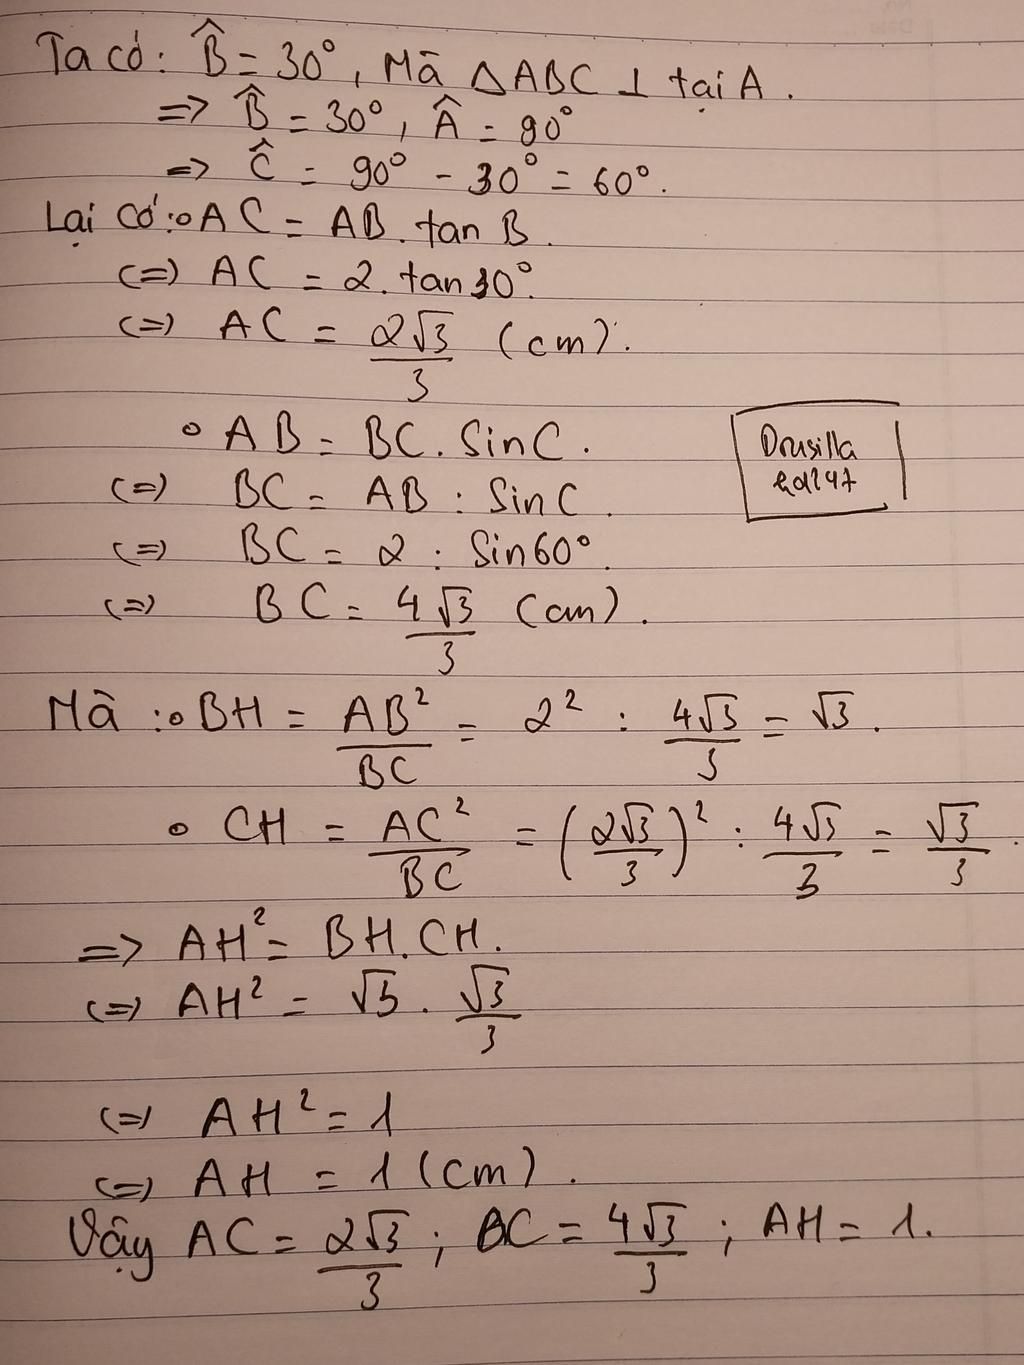 Ta có: B̂ = 30°, Mà △ABC ⊥ tại A.
=> B̂ = 30°, Â = 90°
=> Ĉ = 90° - 30° = 60°.
Lại có: • AC = AB. tan B.
(=) AC = 2. tan 30°.
(=) AC = 2√3/3 (cm).
• AB = BC. Sin C.
(=) BC = AB : Sin C.
(=) BC = 2 : Sin60°.
(=) BC = 4√3/3 (cm).
Drusilla
Mà : • BH = AB²/BC = 2² : 4√3/3 = √3.
• CH = AC²/BC = (2√3/3)² : 4√3/3 = √3/3.
=> AH² = BH. CH.
(=) AH² = √3 . √3/3
(=) AH² = 1
(=) AH = 1 (cm).
Vậy AC = 2√3/3 ; BC = 4√3/3 ; AH = 1.